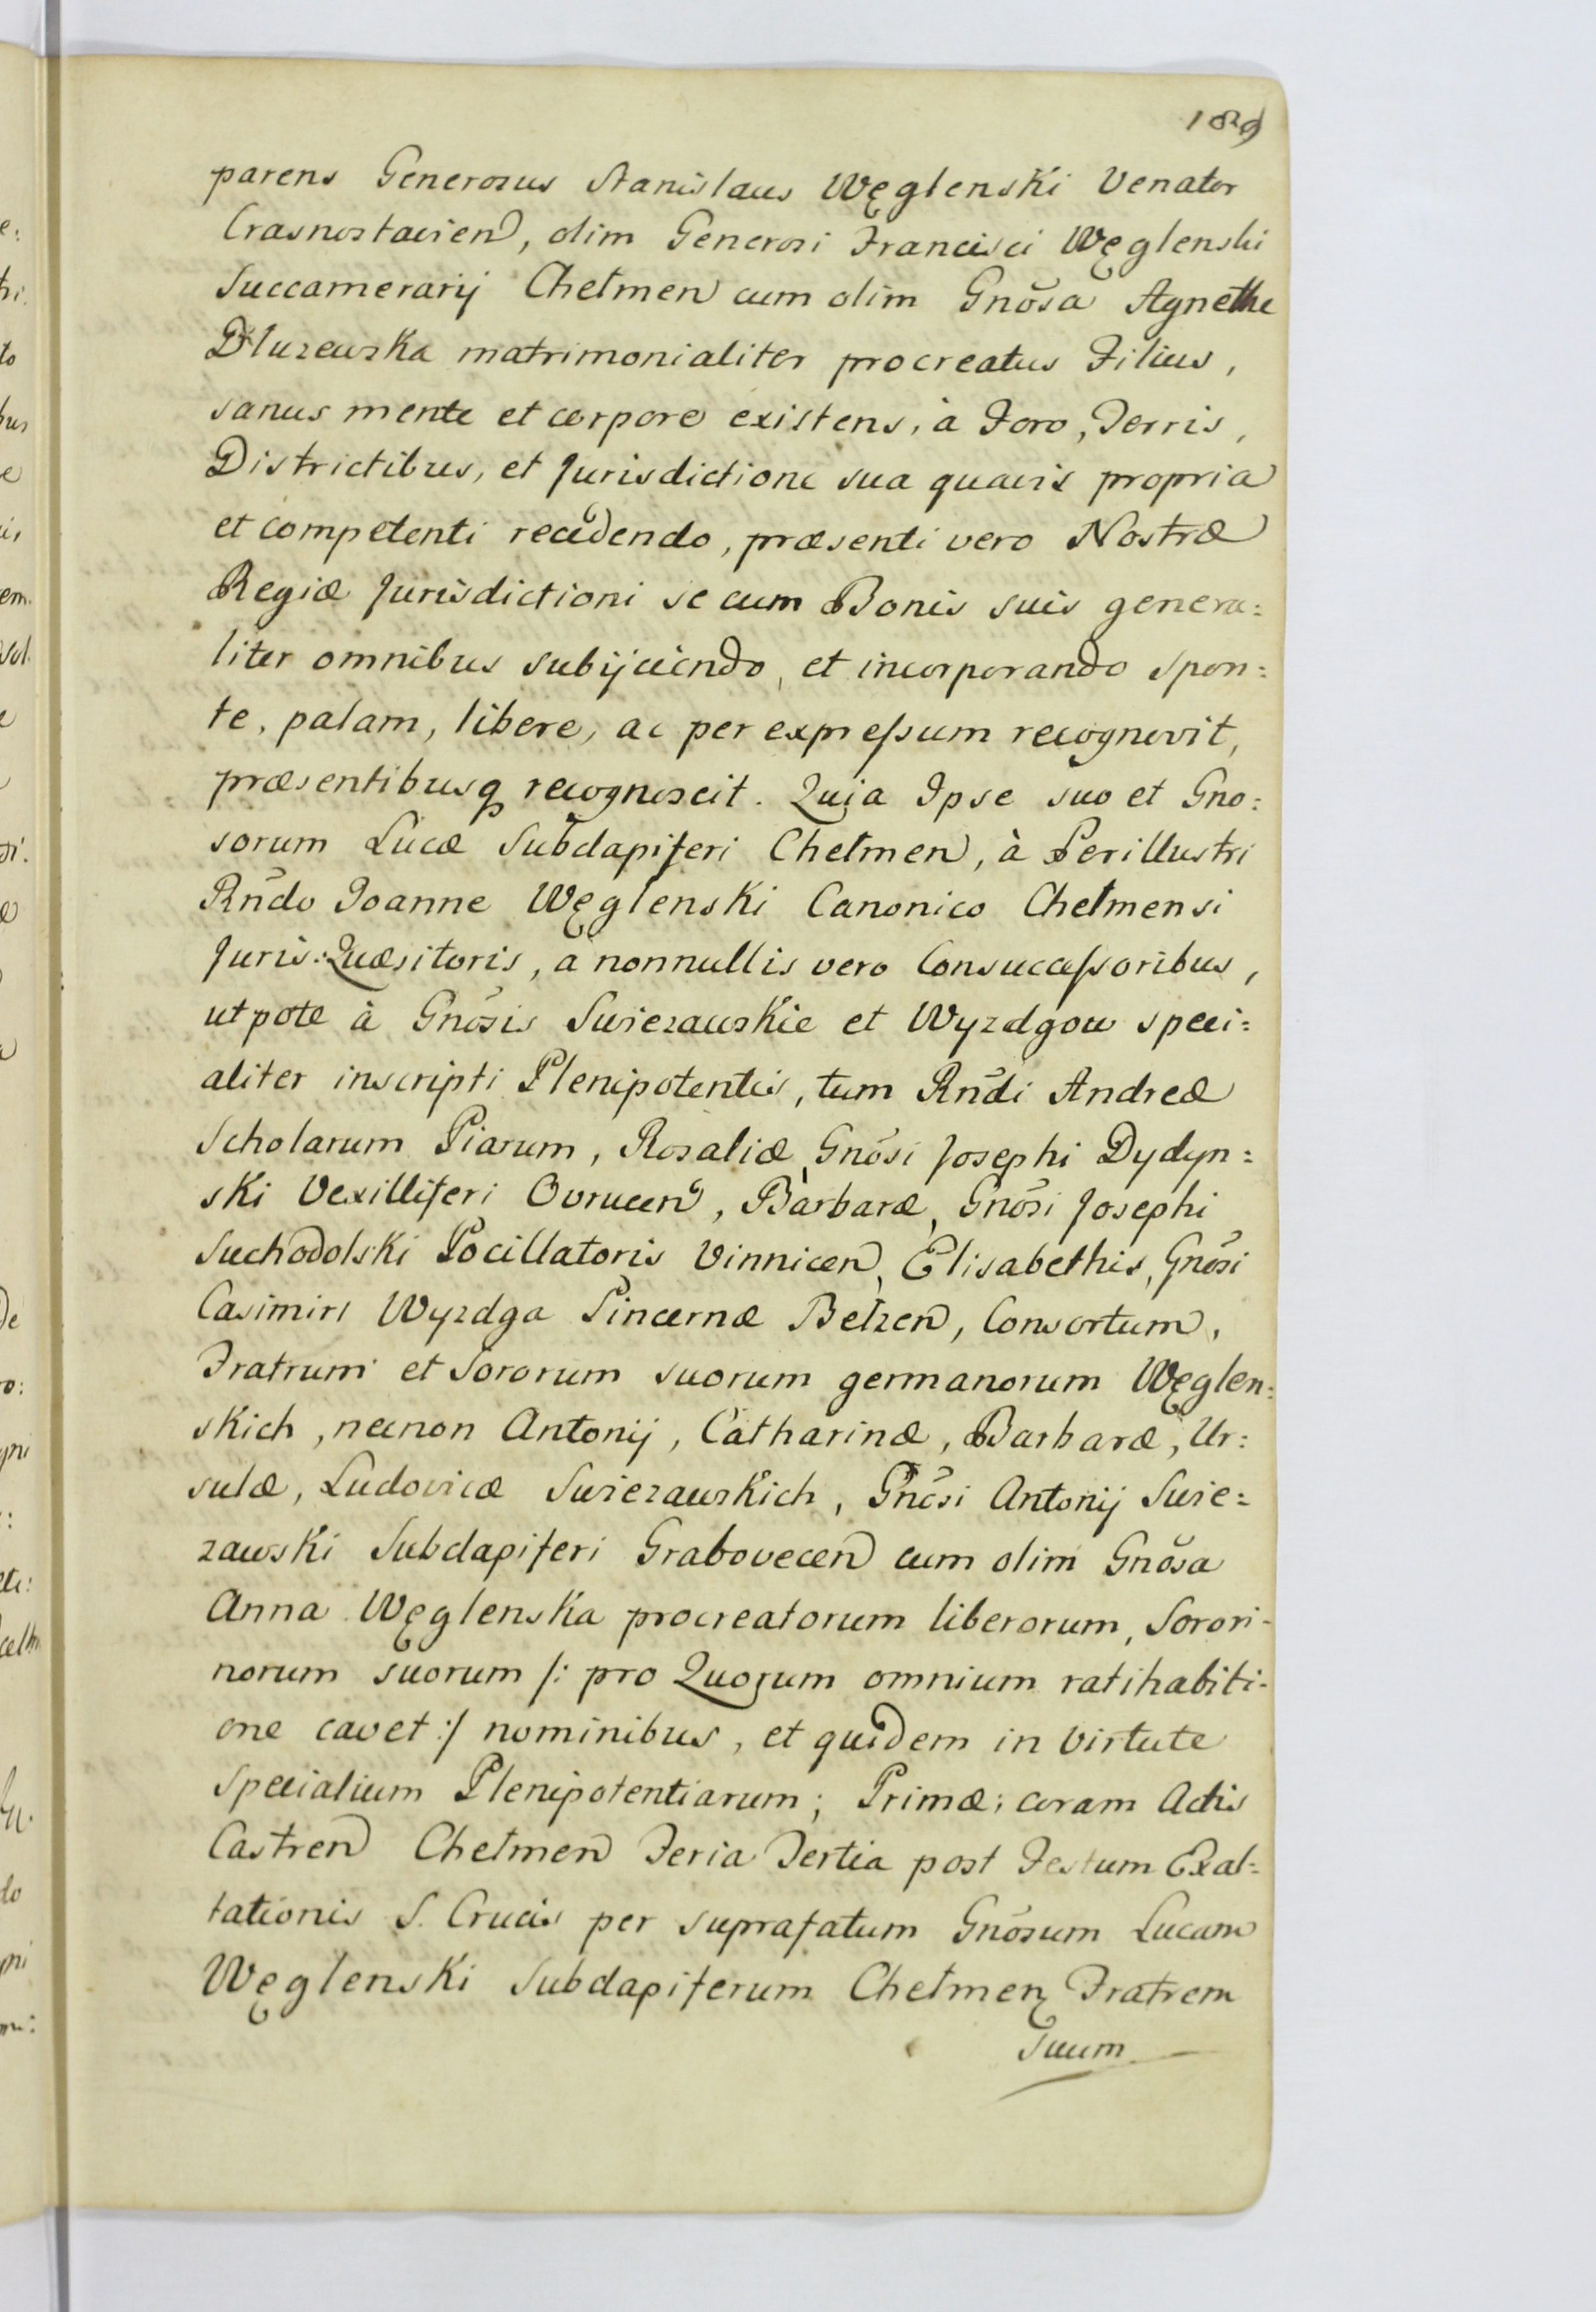 189
parens Generosus Stanislaus Węglenski Venator
Crasnostavien, olim Generosi Francisci Węglenski
Succamerarij Chełmen cum olim Gnõsa Agnethe
Dłuzewska matrimonialiter procreatus Filius,
sanus mente et corpore existens, à Foro, Terris,
Districtibus, et Jurisdictione sua quavis propria
et competenti recedendo, præsenti vero Nostræ
Regiæ Jurisdictioni se cum Bonis suis genera:
liter omnibus subijciendo, et incorporando spon:
te, palam, libere, ac per expressum recognovit,
præsentibusq recognoscit. Quia Ipse suo et Gno:
sorum Lucæ Subdapiferi Chełmen, à Perillustri
Rndo Joanne Węglenski Canonico Chełmensi
Juris:Quæsitoris, a nonnullis vero Consuccessoribus,
utpote à Gnõsis Swiezawskie et Wyzdgow speci:
aliter inscripti Plenipotentis, tum Rndi Andreæ
Scholarum Piarum, Rosaliæ, Gnõsi Josephi Dydyn:
ski Vexilliferi Ovrucen, Barbaræ, Gnõsi Josephi
Suchodolski Pocillatoris Vinnicen, Elisabethis, Gnõsi
Casimiri Wyzdga Pincernæ Bełzen, Consortum,
Fratrum et Sororum suorum germanorum Węglen:
skich, necnon Antonij, Catharinæ, Barbaræ, Ur:
sulæ, Ludovicæ Swiezawskich, Gnõsi Antonij Swie:
zawski Subdapiferi Grabovecen cum olim Gnõsa
Anna Węglenska procreatorum liberorum, Sorori-
norum suorum /: pro Quorum omnium ratihabiti-
one cavet :/ nominibus, et quidem in virtute
Specialium Plenipotentiarum; Primæ; coram Actis
Castren Chełmen Feria Tertia post Festum Exal:
tationis S. Crucis per suprafatum Gnõsum Lucam
Węglenski Subdapiferum Chełmen Fratrem
Suum